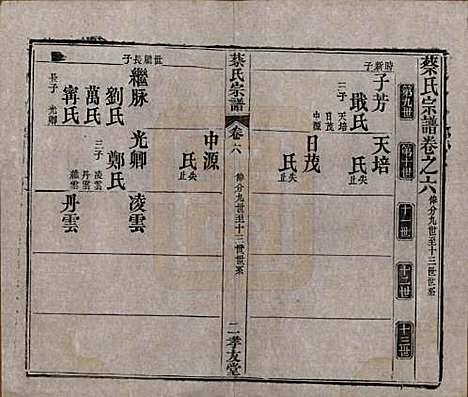 蔡氏宗譜卷之六
偉分九世至十三世世系
第九世
第十世
十一世
十二世
十三世
時新子
子芳
戢氏
三子
天培
日茂
中源
天培
氏失
止
日茂
氏失
止
蔡氏宗譜
卷六
偉分九世至十三世世系
二
孝友堂
中源
氏失
止
世顯長子
繼脉
劉氏
萬氏
甯氏
長子
光卿
光卿
鄭氏
三子
凌雲
丹雲
凌雲
丹雲